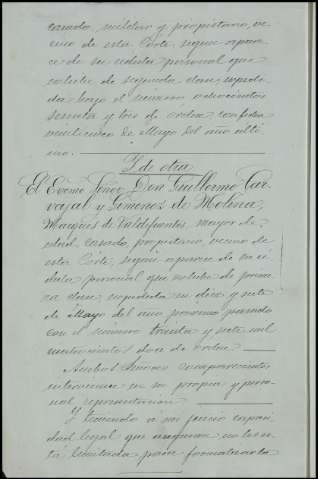 casado, militar y propietario, ve-
cino de esta Corte, segun apare-
ce de su cédula personal que
exhibe de segunda clase expedi-
da bajo el número ochocientos
sesenta y tres de orden con fecha
veinticinco de Mayo del año últi-
mo.
Y de otra
El Excmo Señor Don Guillermo Car-
vajal y Gimenez de Molina,
Marqués de Valdefuentes, mayor de
edad, casado, propietario vecino de
esta Corte, segun aparece de su cé-
dula personal que exhibe de prime-
ra clase, expedida en diez y siete
de Mayo del año próximo pasado
con el número treinta y siete mil
cuatrocientos doce de orden
Ambos Señores comparecientes
intervienen en su propia y perso-
nal representacion.
Y teniendo á mi juicio capaci-
dad legal que aseguran no les es-
tá limitada para formalizar la